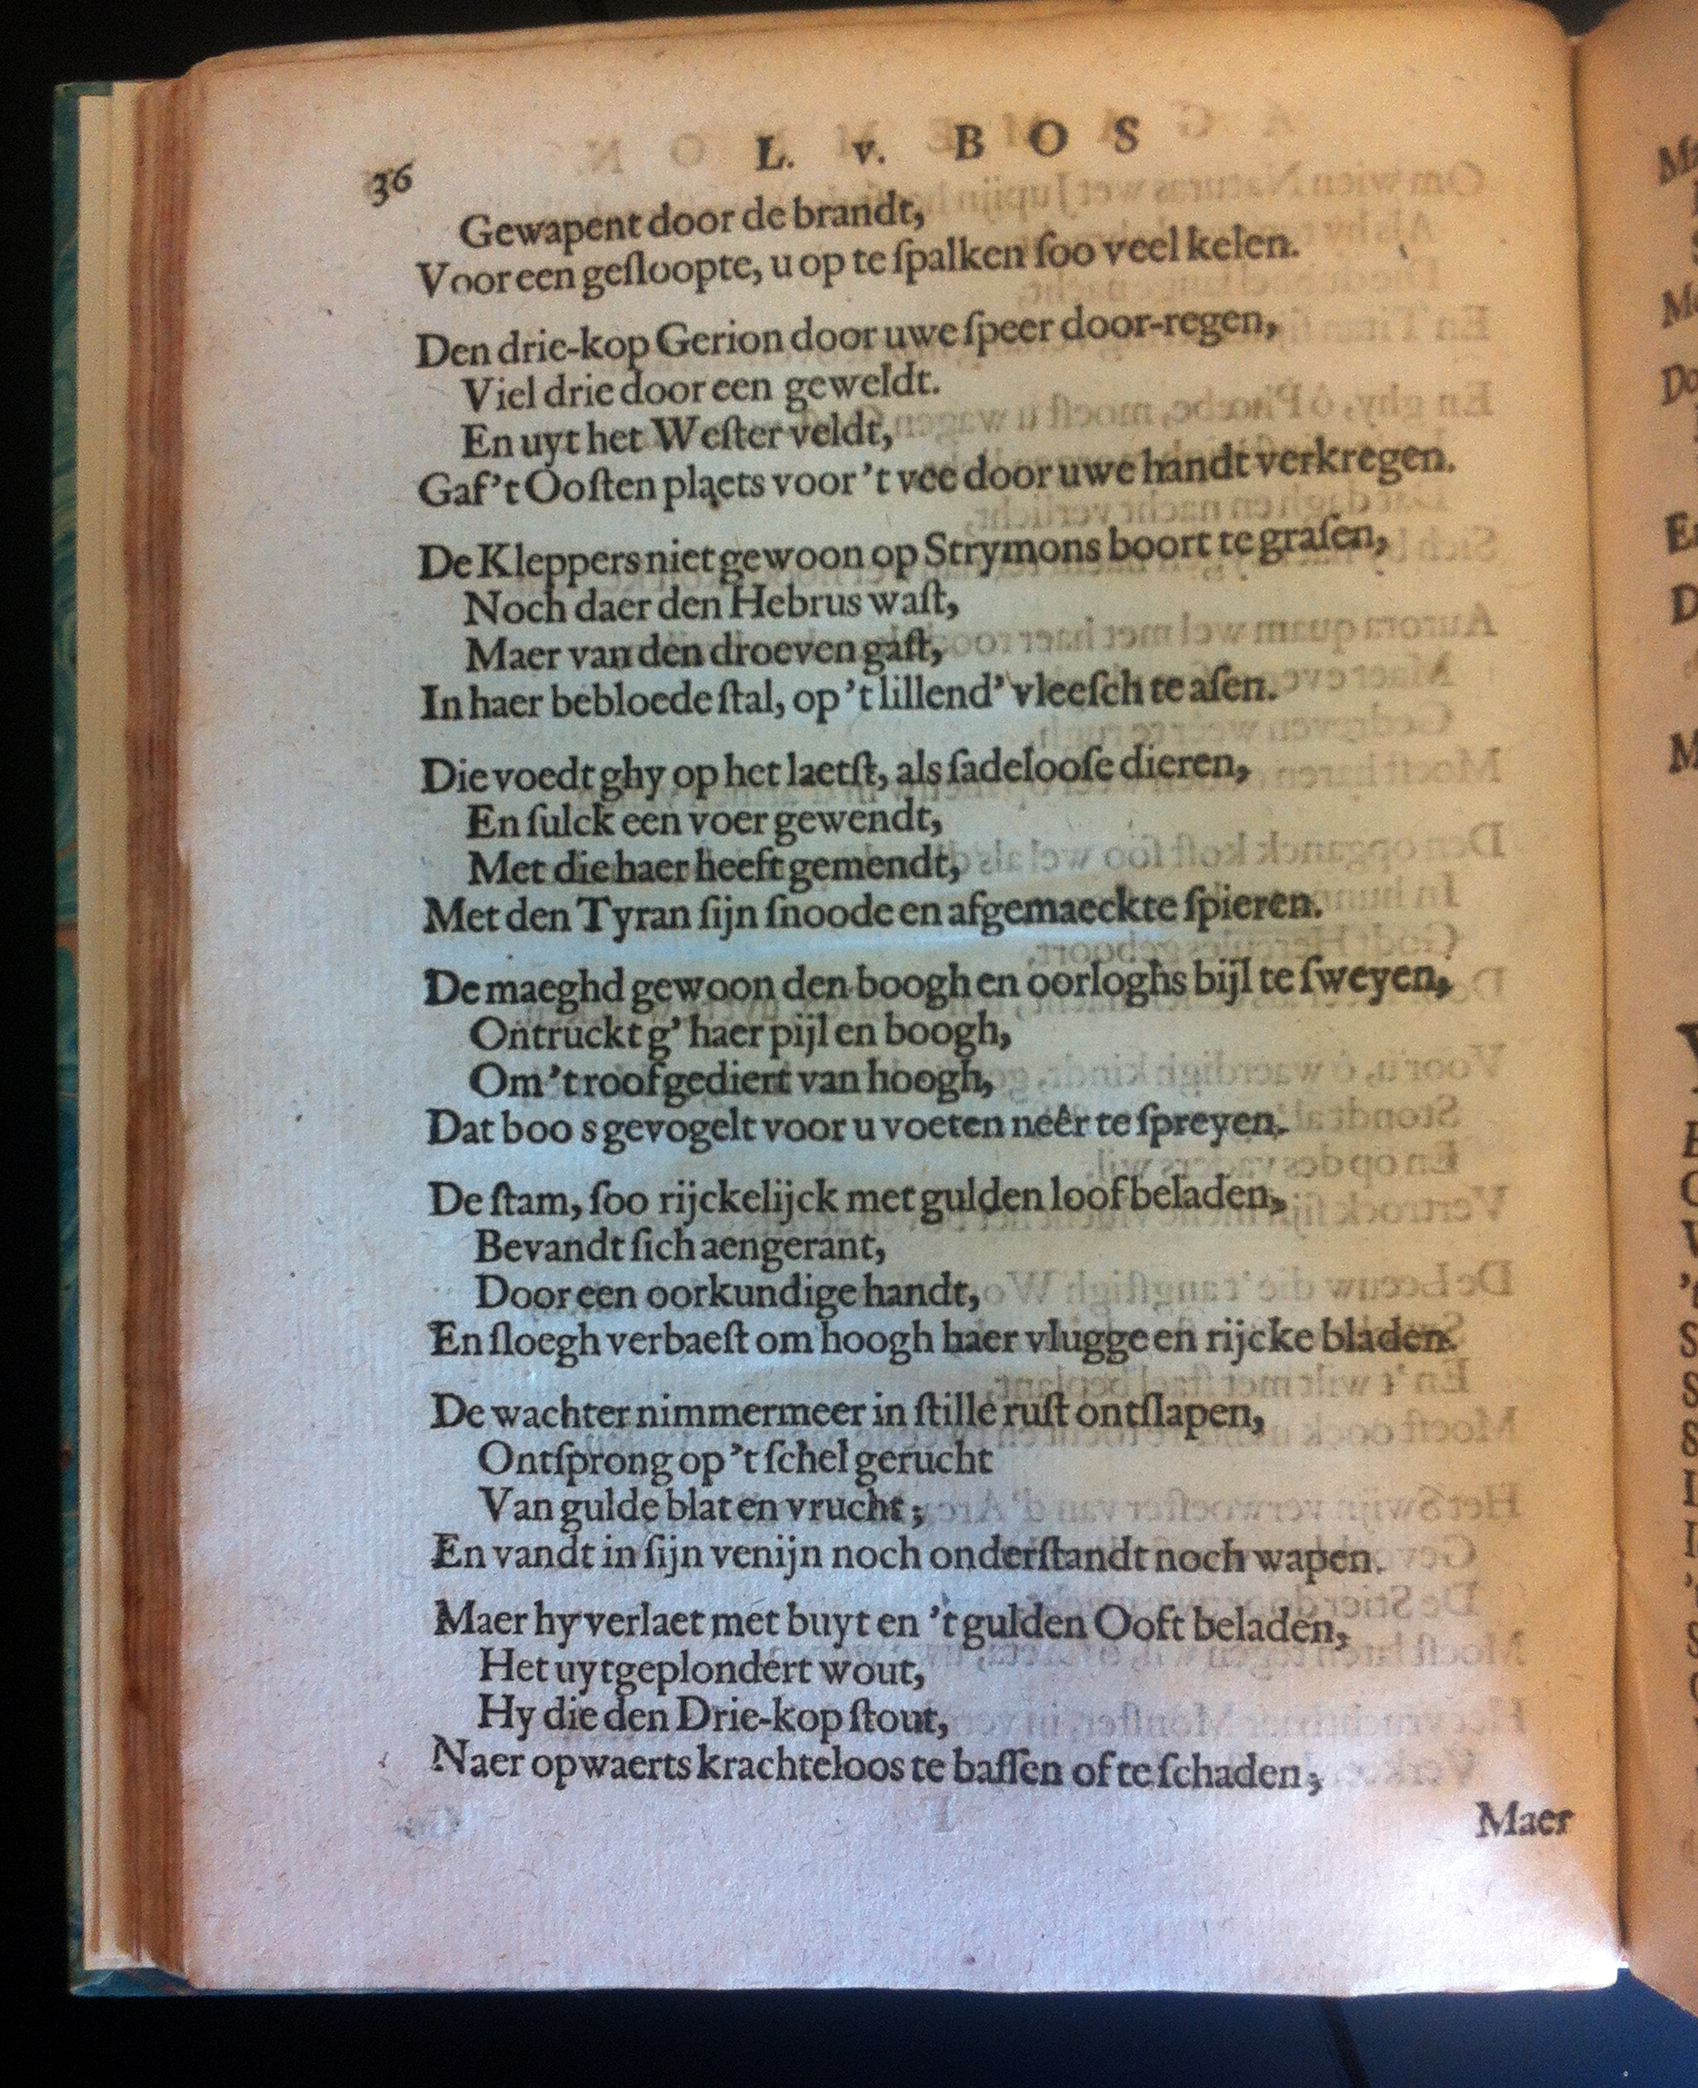 36
L. v. BOS
Gewapent door de brandt,
Voor een geſloopte, u op te ſpalken ſoo veel kelen.
Den drie-kop Gerion door uwe ſpeer door-regen,
Viel drie door een geweldt.
En uyt het Weſter veldt,
Gaf 't Ooſten plaets voor 't vee door uwe handt verkregen.
De Kleppers niet gewoon op Strymons boort te graſen,
Noch daer den Hebrus waſt,
Maer van den droeven gaſt,
In haer bebloede ſtal, op 't lillend' vleeſch te aſen.
Die voedt ghy op het laetſt, als ſadelooſe dieren,
En ſulck een voer gewendt,
Met die haer heeft gemendt,
Met den Tyran ſijn ſnoode en afgemaeckte ſpieren.
De maeghd gewoon den boogh en oorloghs bijl te ſweyen,
Ontruckt g' haer pijl en boogh,
Om 't roofgediert van hoogh,
Dat boo s gevogelt voor u voeten neêr te ſpreyen.
De ſtam, ſoo rijckelijck met gulden loof beladen,
Bevandt ſich aengerant,
Door een oorkundige handt,
En ſloegh verbaeſt om hoogh haer vlugge en rijcke bladen.
De wachter nimmermeer in ſtille ruſt ontſlapen,
Ontſprong op 't ſchel gerucht
Van gulde blat en vrucht;
En vandt in ſijn venijn noch onderſtandt noch wapen.
Maer hy verlaet met buyt en 't gulden Ooft beladen,
Het uytgeplondert wout,
Hy die den Drie-kop ſtout,
Naer opwaerts krachteloos te baſſen of te ſchaden;
Maer